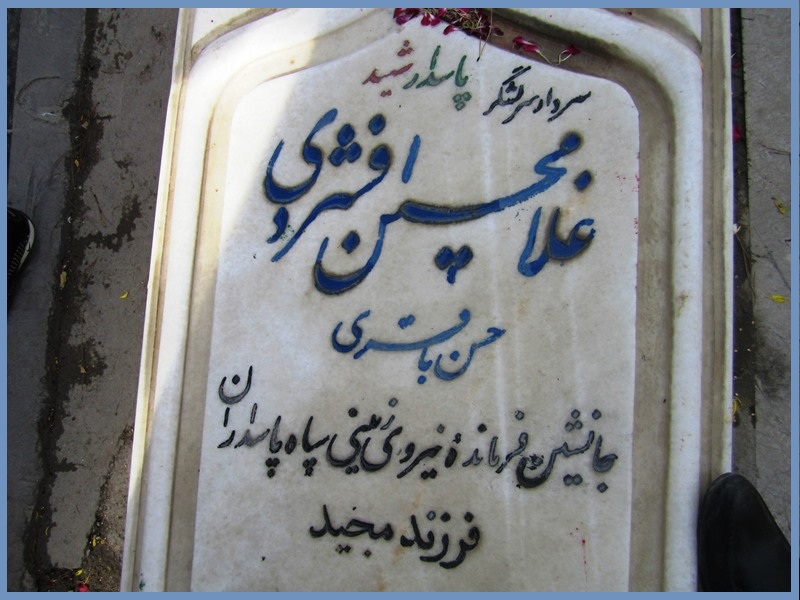 پاسدار شهید
سردار سرلشگر
غلامحسین افشردی
حسن باقری
جانشین فرمانده نیروی زمینی سپاه پاسداران
فرزند مجید